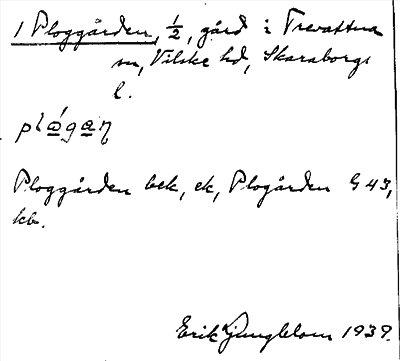 1 Ploggården, ½, gård i Trevattna
sn, Vilske hd, Skaraborgs
l.
plógan
Ploggården bek, ek, Plogården G 43,
kb.
Erik Ljungblom 1939.